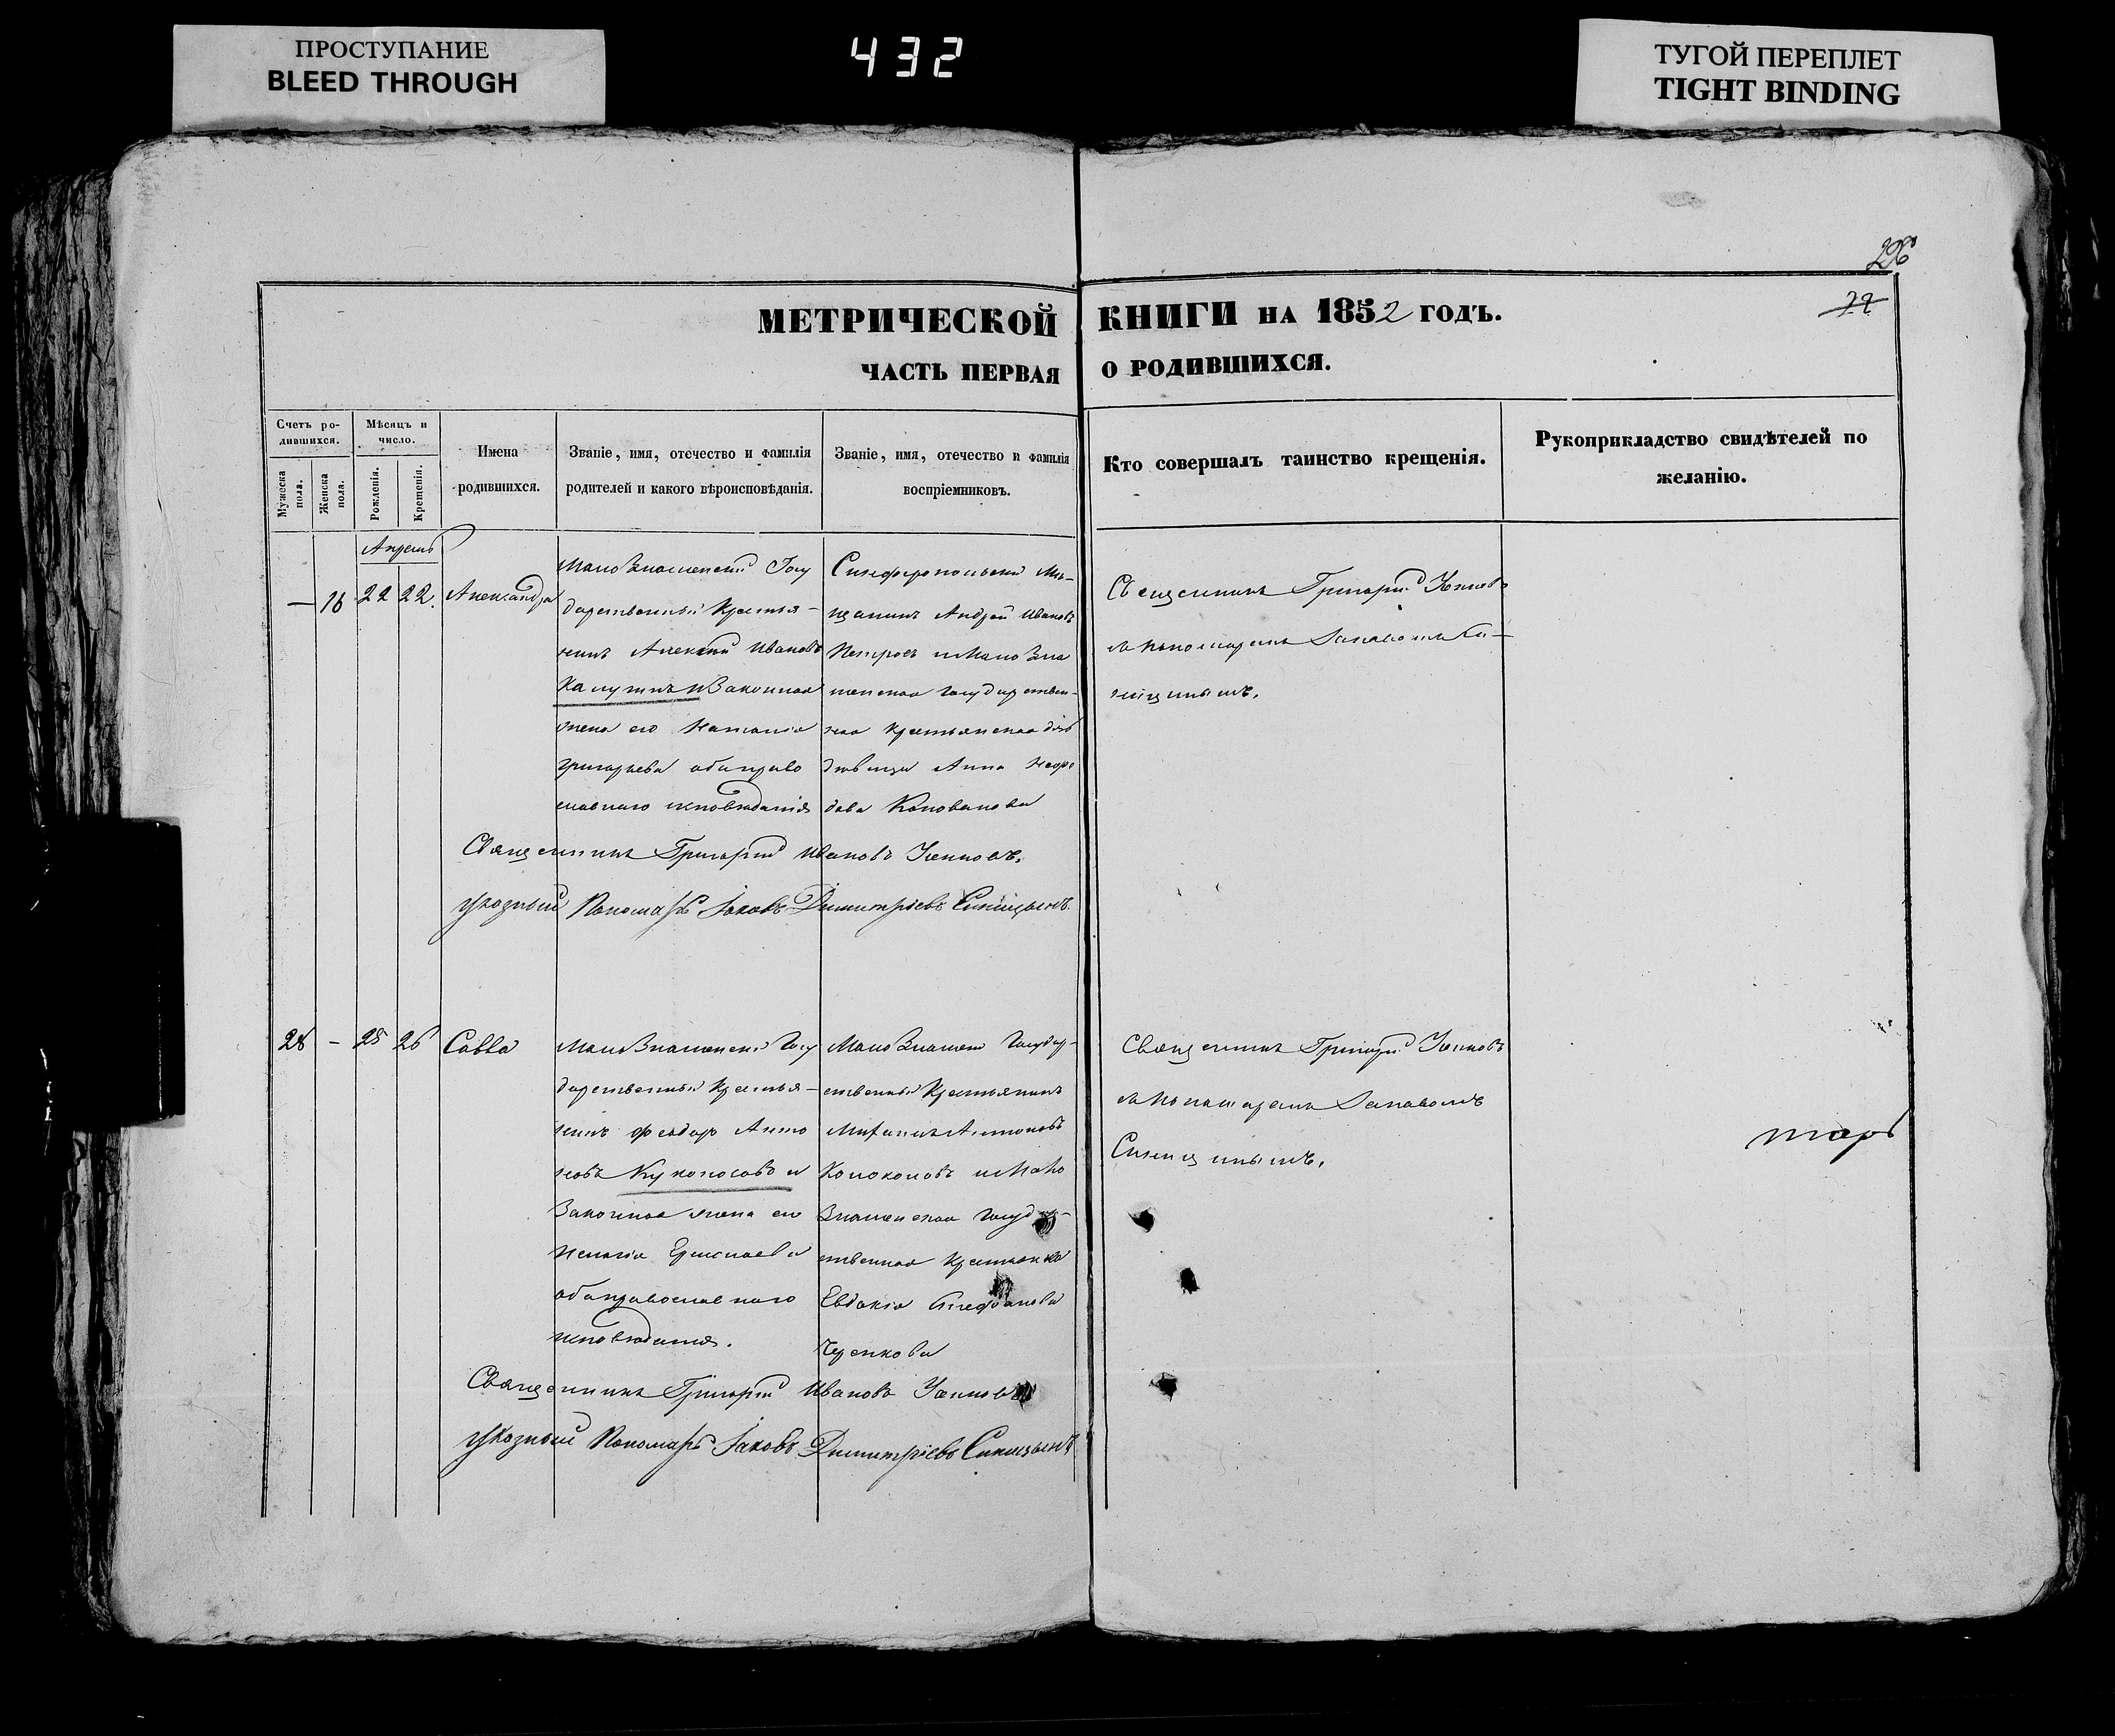 ПРОСТУПАНИЕ
BLEED THROUGH
432
ТУГОЙ ПЕРЕПЛЕТ
TIGHT BINDING
МЕТРИЧЕСКОЙ КНИГИ НА 1852 ГОДЪ.
72
ЧАСТЬ ПЕРВАЯ О РОДИВШИХСЯ.
Счетъ ро-
дившихся.
Мужеска пола.
Женска пола.
Мѣсяцъ и
число.
Рожденія.
Крещенія.
Имена
родившихся.
Званіе, имя, отечество и фамилія
родителей и какого вѣроисповѣданія.
Званіе, имя, отечество и фамилія
воспріемниковъ.
Кто совершалъ таинство крещенія.
Рукоприкладство свидѣтелей по
желанію.
Апрель
— 16 22 22. Александра
МалоЗнаменскій Госу
дарственный Крестья-
нинъ Алексій Ивановъ
Калугинъ и Законная
жена его Наталія
Григорьева оба право
славнаго исповѣданія
Симферопольскій Мѣ-
щанинъ Андрей Ивановъ
Петровъ и МалоЗна
менская государствен-
ная крестьянская
девица Анна
Коновалова
Священникъ Григорій
съ пономаремъ Іаковомъ Си-
ницынымъ.
Священникъ Григорій Ивановъ
указный Пономарь Іаковъ Димитріевъ Синицынъ.
28 — 25 26 Савва
МалоЗнаменскій Госу
дарственный Крестья-
нинъ Феодоръ Анто
новъ Куконосовъ и
Законная жена его
Пелагія Ермолаева
оба православнаго
исповѣданія.
МалоЗнамен Государ-
ственный Крестьянинъ
Михаилъ Антоновъ
Колоколовъ и Мало
Знаменская Государ-
ственная Крестьянка
Евдокія Стефанова
Черенкова
Священникъ Григорій
съ пономаремъ Іаковомъ
Синицынымъ.
марь
Священникъ Григорій Ивановъ
указный Пономарь Іаковъ Димитріевъ Синицынъ